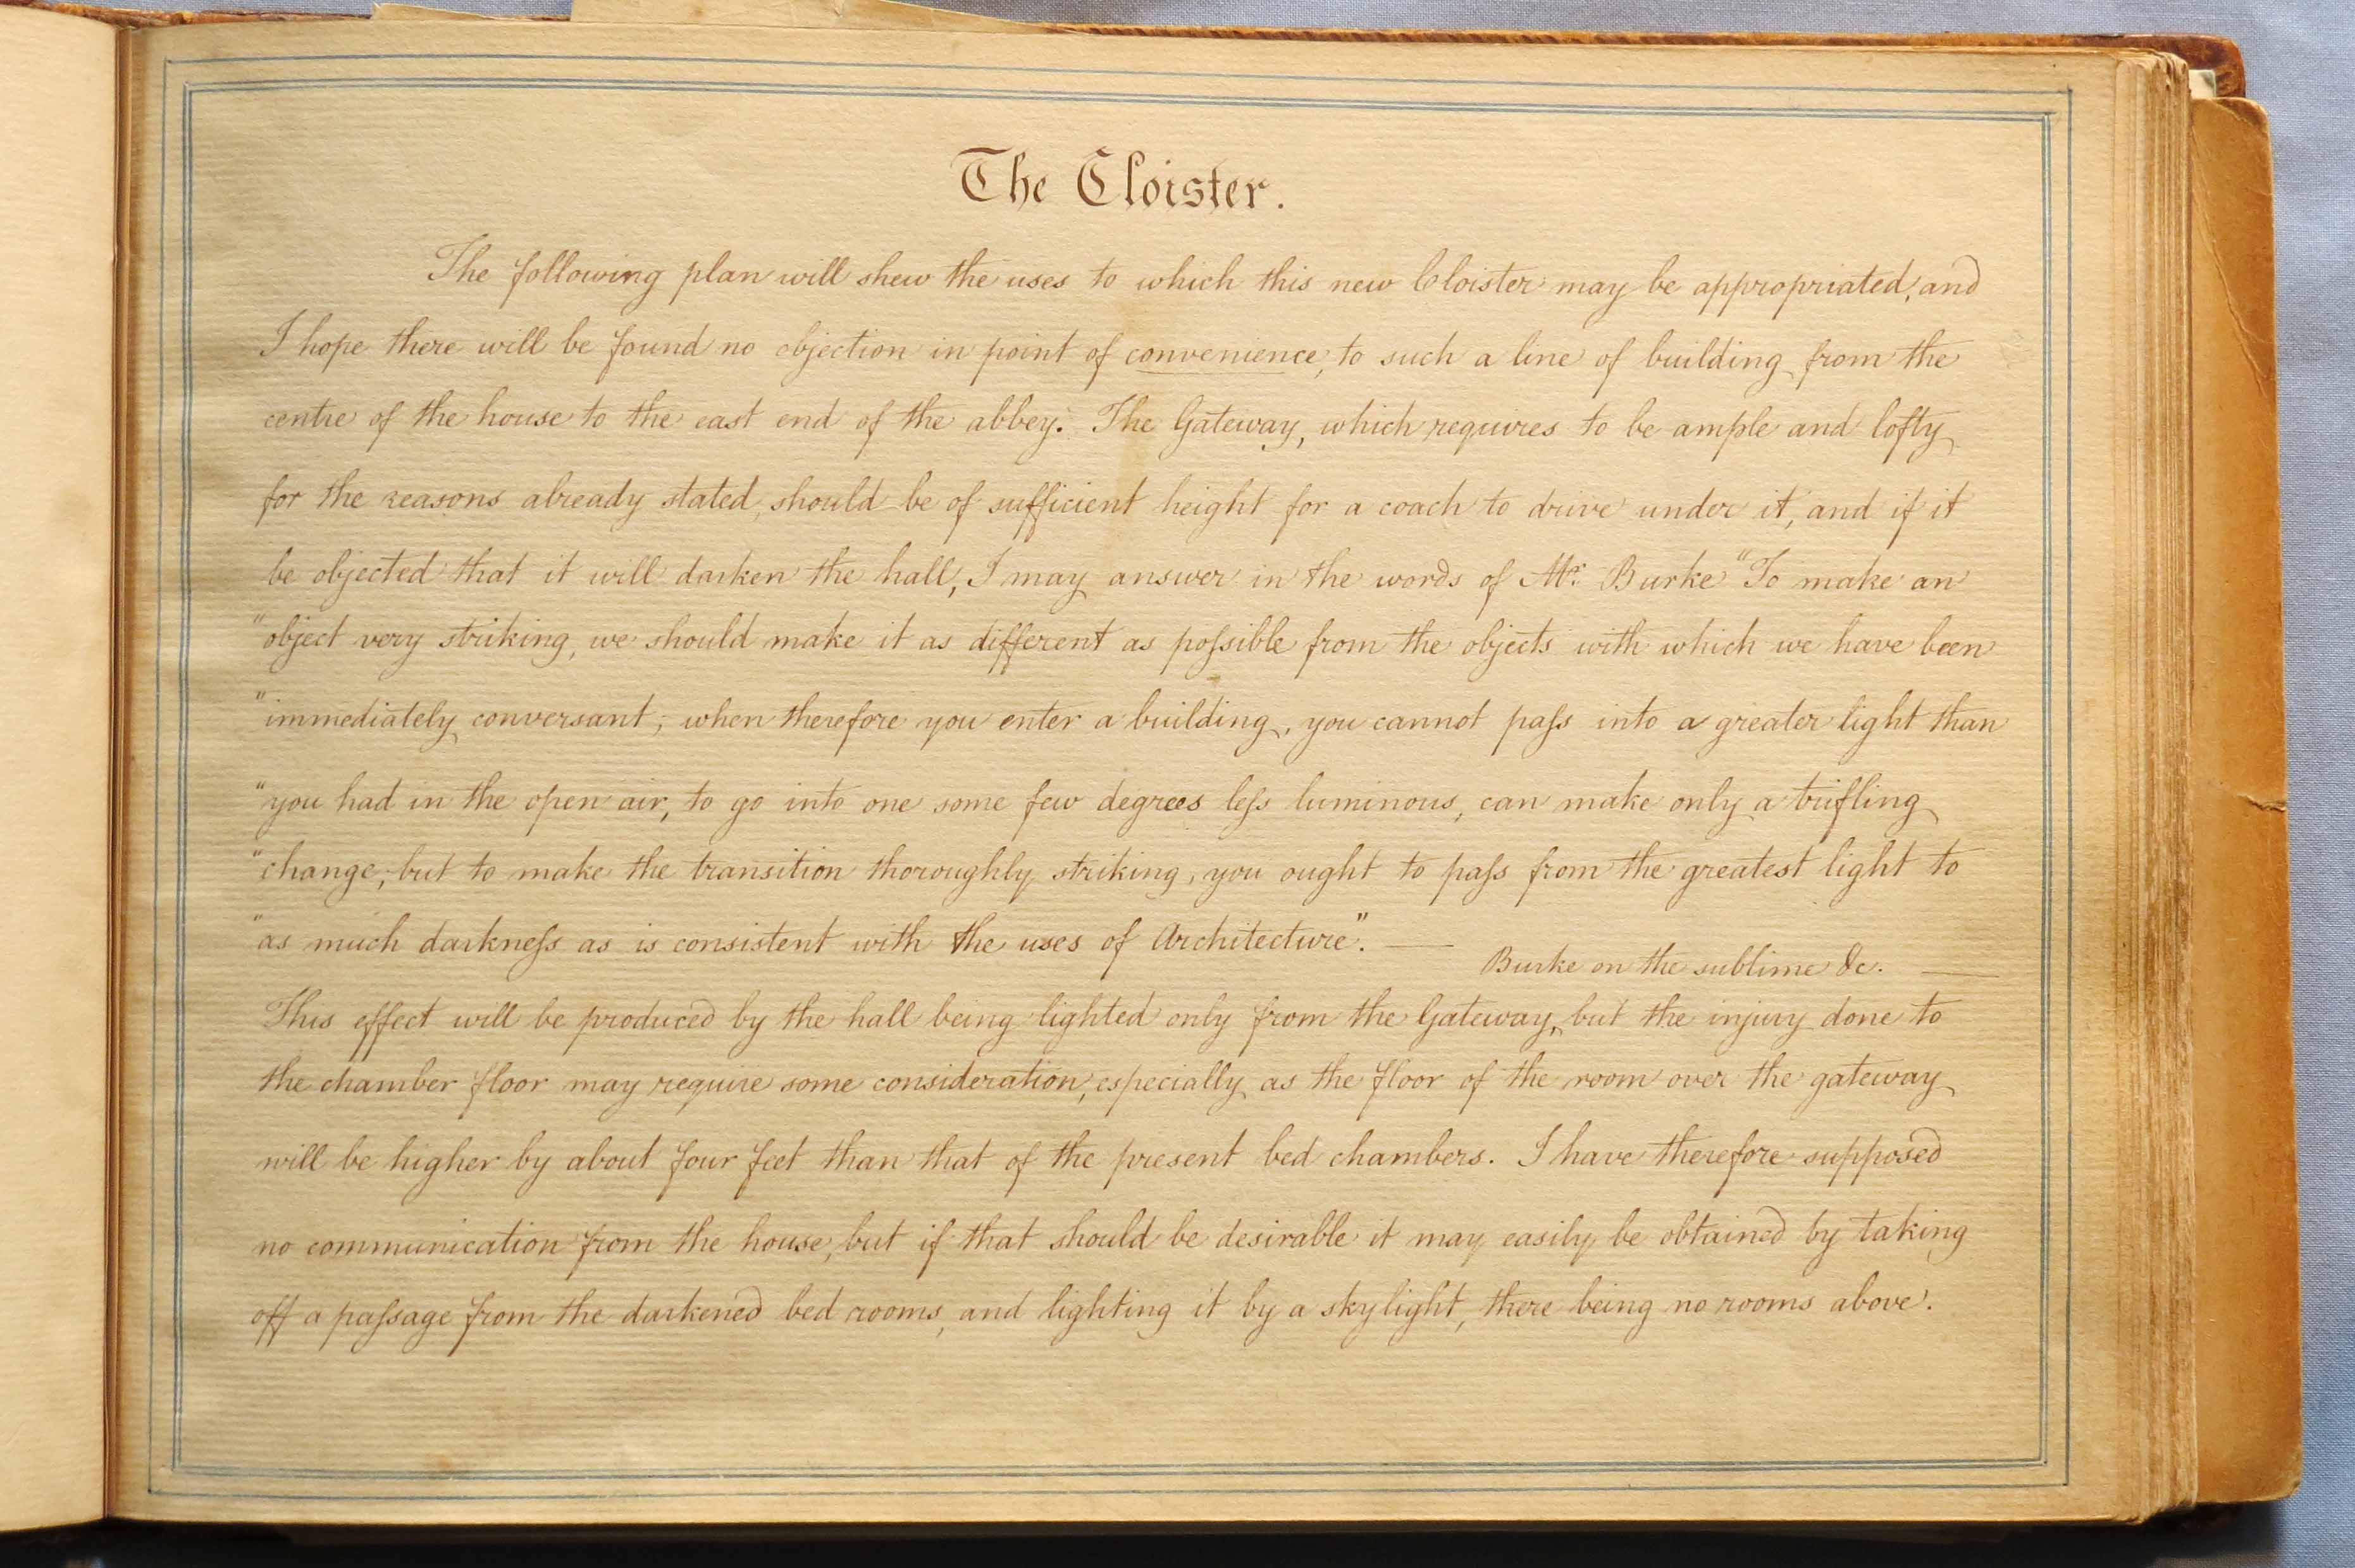 The Cloister.
The following plan will shew the uses to which this new Cloister may be appropriated, and
I hope there will be found no objection in point of convenience, to such a line of building from the
centre of the house to the east end of the abbey. The Gateway, which requires to be ample and lofty
for the reasons already stated, should be of sufficient height for a coach to drive under it, and if it
be objected that it will darken the hall, I may answer in the words of Mr. Burke "To make an
"object very striking, we should make it as different as poſsible from the objects with which we have been
"immediately conversant; when therefore you enter a building, you cannot paſs into a greater light than
"you had in the open air, to go into one some few degrees leſs luminous, can make only a trifling
"change; but to make the transition thoroughly striking, you ought to paſs from the greatest light to
"as much darkneſs as is consistent with the uses of Architecture". —
Burke on the sublime &c. —
This effect will be produced by the hall being lighted only from the Gateway, but the injury done to
the chamber floor may require some consideration, especially as the floor of the room over the gateway
will be higher by about four feet than that of the present bed chambers. I have therefore supposed
no communication from the house, but if that should be desirable it may easily be obtained by taking
off a paſsage from the darkened bed rooms, and lighting it by a skylight, there being no rooms above.